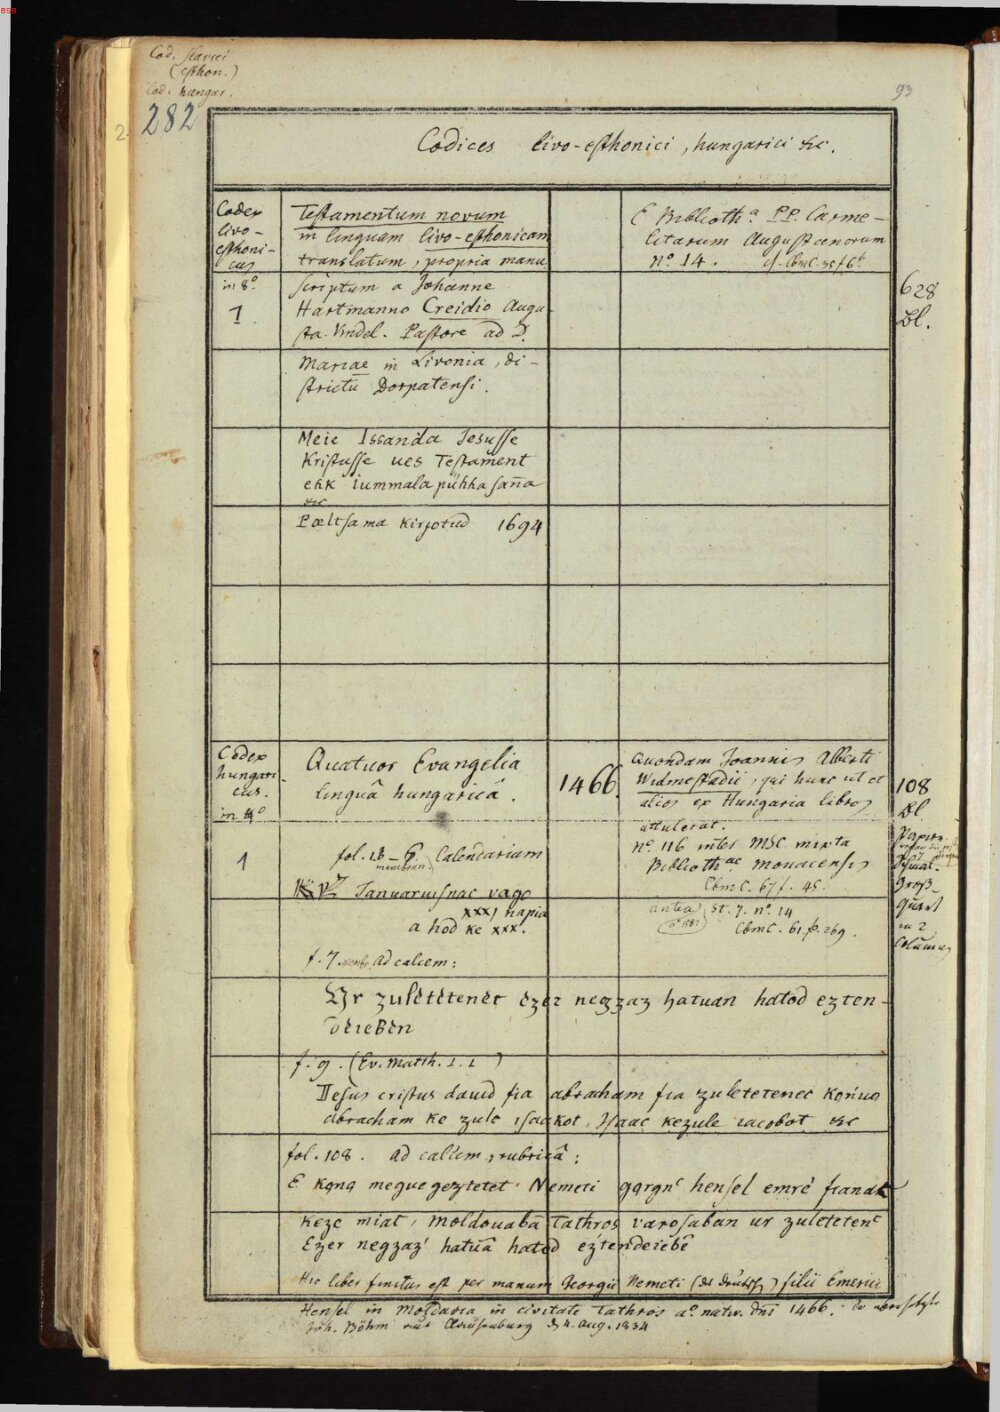 BSB
Cod. slavici
(esthon.)
Cod. hungar.
282
93
2
Codices livo-esthonici, hungarici &c.
Codex
livo-
esthoni-
cus
in 8°.
1.
Testamentum novum
in linguam livo-esthonicam
translatum, propria manu
scriptum a Johanne
Hartmanno Creidio Augu-
sta Vindel. Pastore ad D.
Mariae in Livonia, di-
strictu Dorpatensi.
Meie Issanda Jesusse
Kristusse ues Testament
ekk iummala pühha sana
&c
Pœltsama kirjotud 1694
E Biblioth.ª PP. Carme-
litarum Augustanorum
N° 14. cf. Cbmc. 35 f. 6b
628
Bl.
Codex
hungari-
cus.
in 4°
1
Quatuor Evangelia
linguâ hungaricâ.
1466.
Quondam Joannis Alberti
Widmestadii, qui hunc ut et
alios ex Hungaria libros
attulerat.
N° 116 inter MSC. mixta
Biblioth.ae Monacensis
Cbm C. 67 f. 45.
antea St. 7. n° 14
Cbm C. 61. p. 269.
108
Bl
Papier
Schmal-
Groß-
Quart
in 2
Columnen
fol. 1b – 6. Calendarium
membran.
Januariusnac vago
xxxi napia
a hod ke xxx.
f. 7 membr. ad calcem:
Vr zuletetenec ezer negzaz hatuan hatod ezten-
deieben
f. 9. (Ev. Matth. 1. 1)
Jesus cristus dauid fia abracham fia zuletetenec końuo
abracham ke zule isaakot, Isaac kezule iacobot &c
fol. 108. ad calcem, rubricâ:
E kqnq megue geztetet Nemeti gqrgnc hensel emré fianak
keze miat, moldouabā Tathros varosaban ur zuletetenc
Ezer negzaz hatuā hatod eztendeiebē
Hic liber finitus est per manum Georgii Nemeti (des Deutsch) filii Emerici
Hensel in Moldavia in civitate Tathros a° nativ. dni 1466.
Joh. Böhm aus Clausenburg d. 4. Aug. 1834